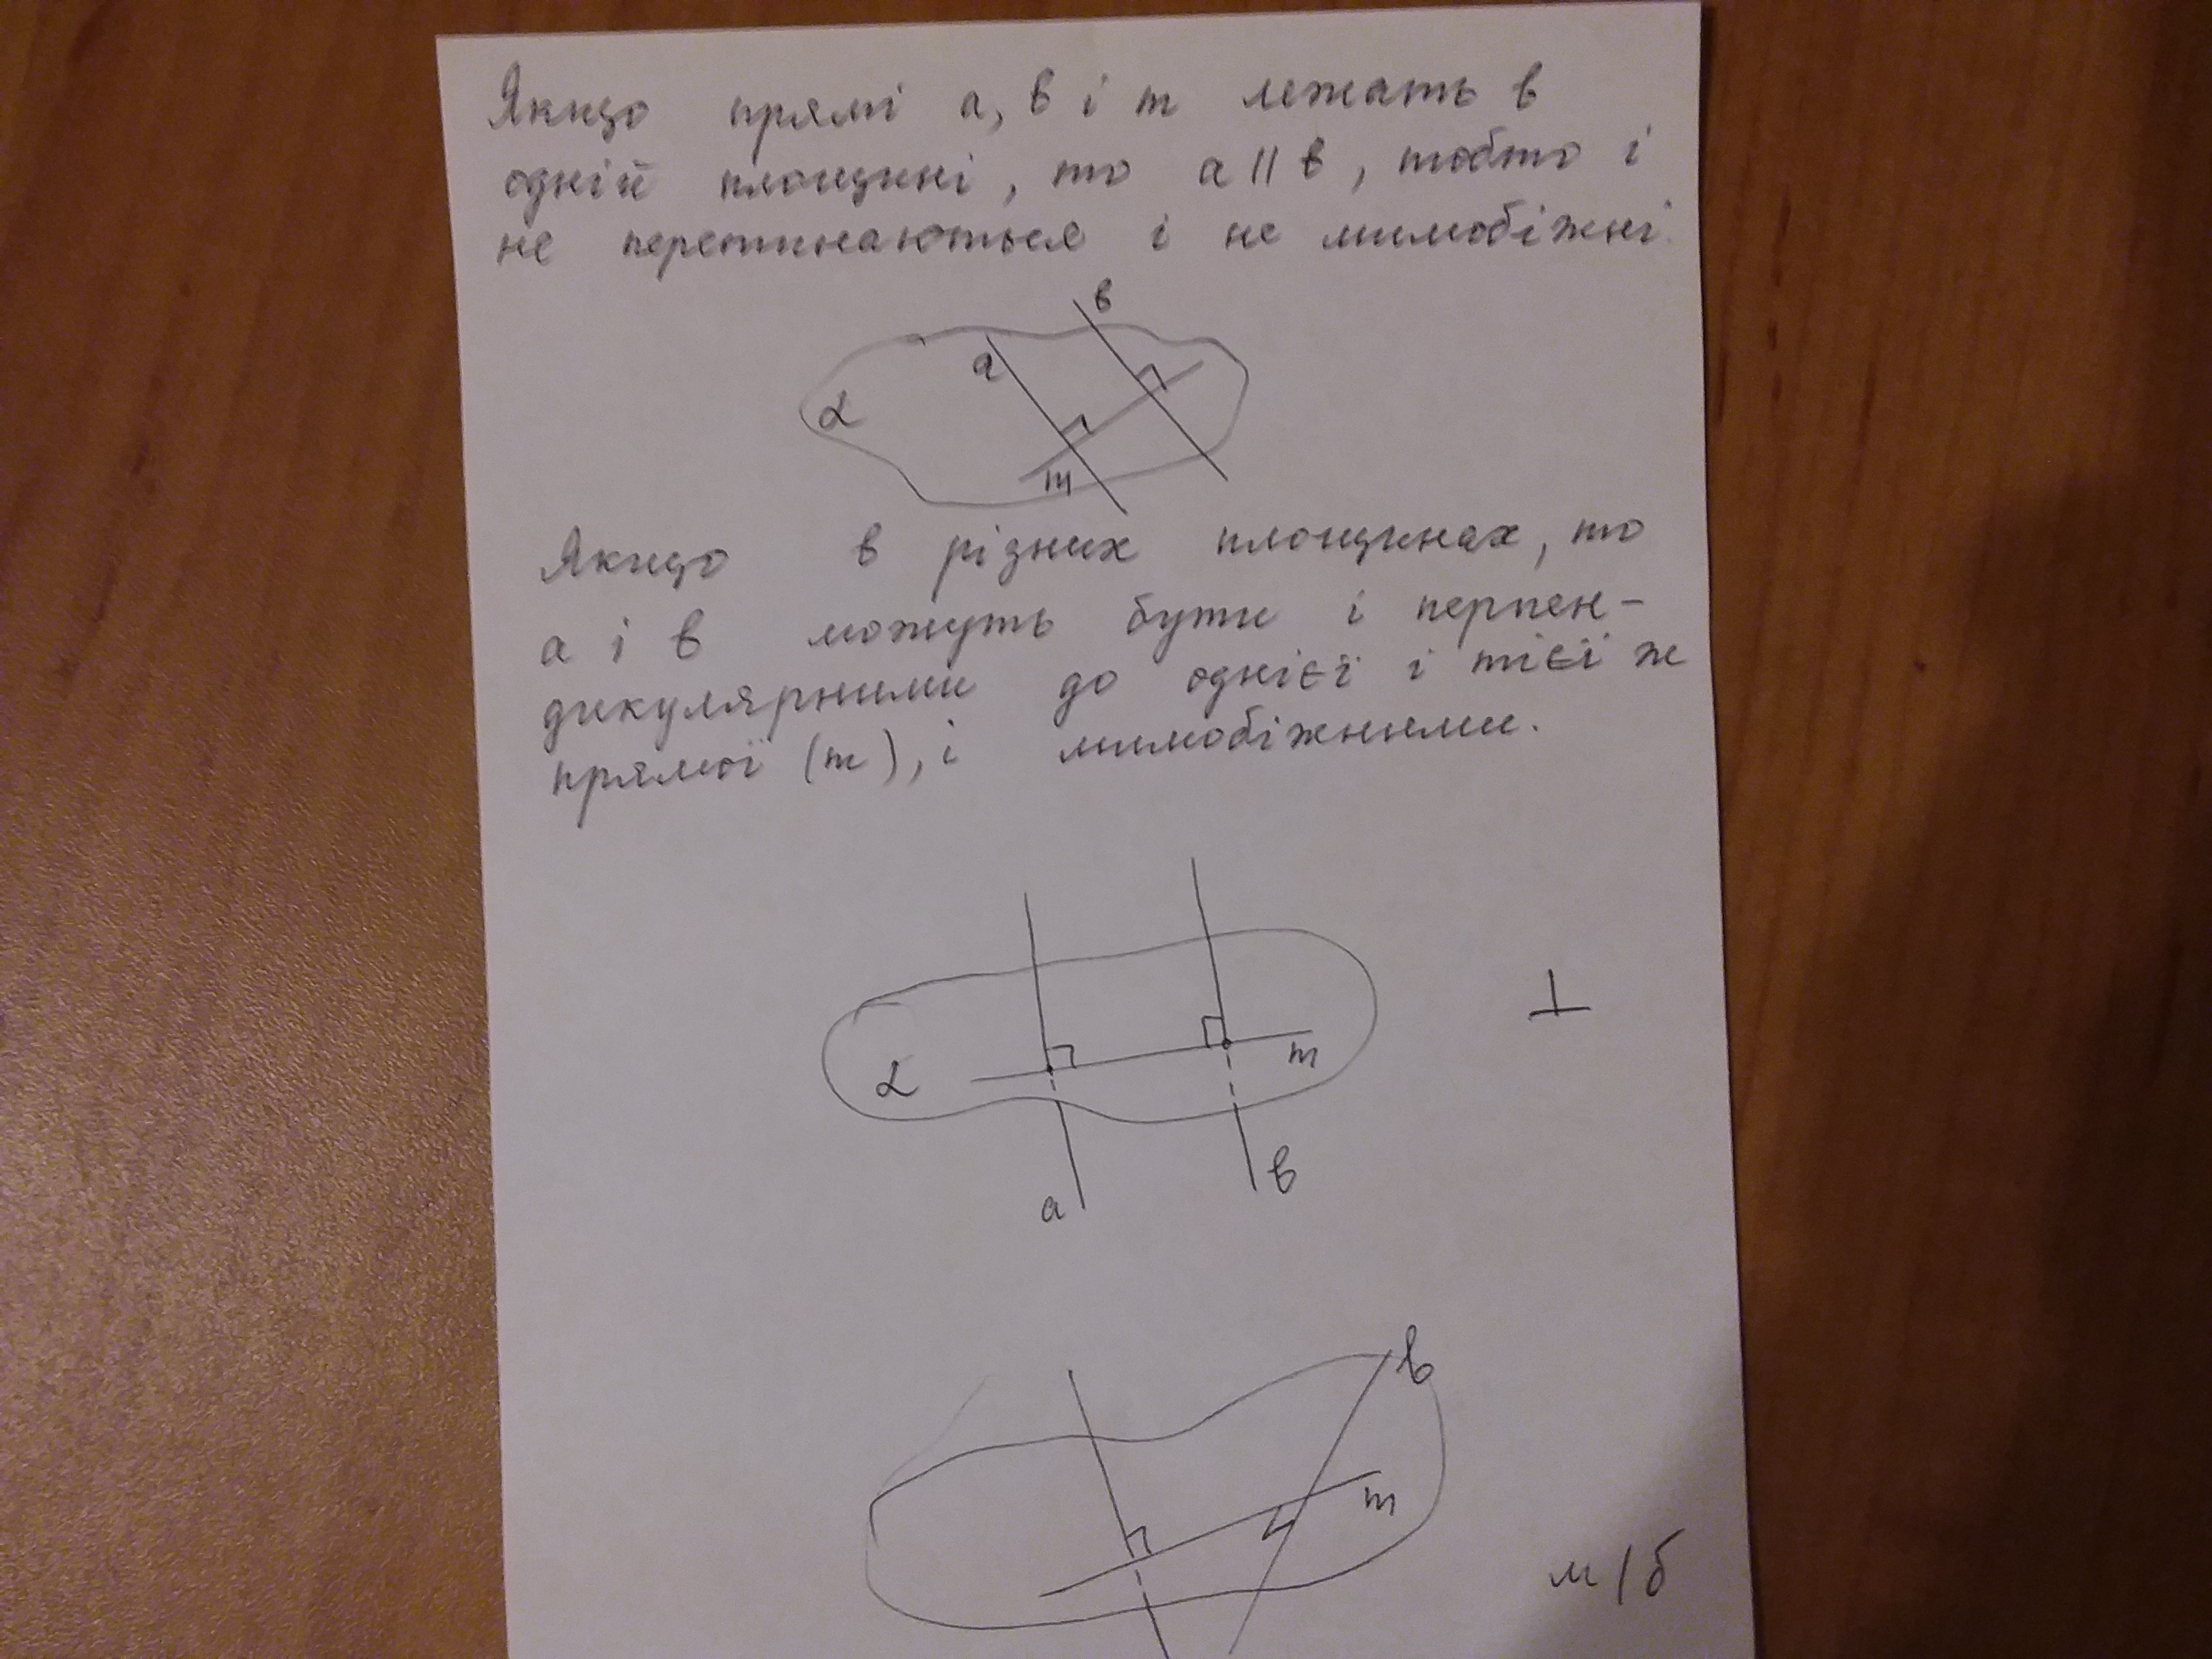 Якщо прямі а, в і m лежать в
одній площині, то а || в, тобто і
не перетинаються і не мимобіжні.
в
а
α
m
Якщо в різних площинах, то
а і в можуть бути і перпен-
дикулярними до однієї і тієї ж
прямої (m), і мимобіжними.
⊥
m
α
в
а
в
m
м/б